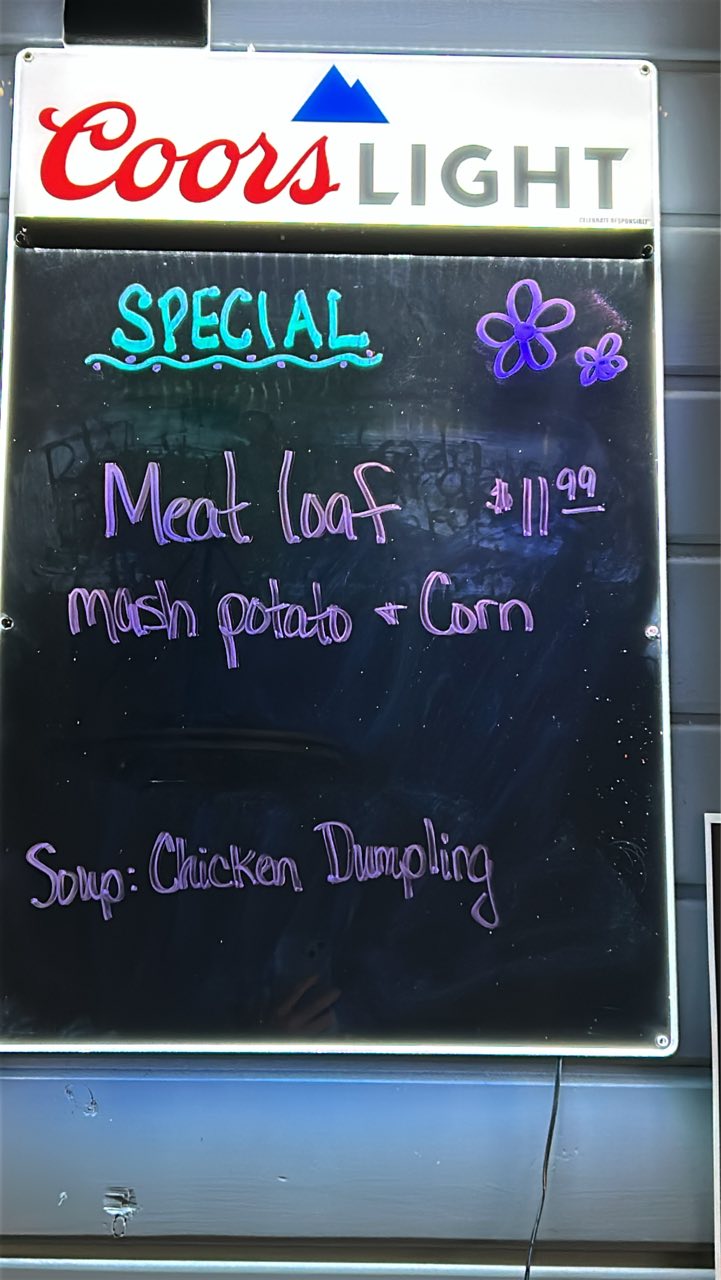 Coors LIGHT
CELEBRATE RESPONSIBLY
SPECIAL
Meat loaf $11.99
mash potato + Corn
Soup: Chicken Dumpling